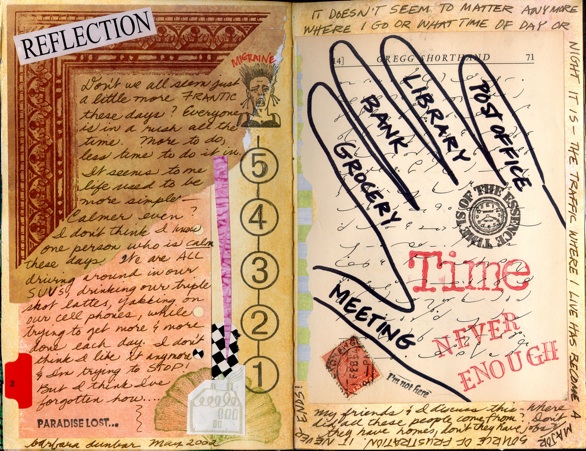 REFLECTION
MIGRAINE
Don't we all seem just
a little more FRANTIC
these days? Everyone
is in a rush all the
time. More to do,
less time to do it in.
It seems to me
life used to be
more simple –
calmer even?
I don't think I know
one person who is calm
these days. We are ALL
driving around in our
SUVs, drinking our triple
shot lattes, yakking on
our cell phones, while
trying to get more & more
done each day. I don't
think I like it anymore
& I'm trying to STOP!
But I think I've
forgotten how....
PARADISE LOST...
barbara dunbar May 2002
5
4
3
2
1
IT DOESN'T SEEM TO MATTER ANYMORE
WHERE I GO OR WHAT TIME OF DAY OR
NIGHT IT IS – THE TRAFFIC WHERE I LIVE HAS BECOME
MAJOR
SOURCE OF FRUSTRATION. IT NEVER
ENDS!
GREGG SHORTHAND
71
POST OFFICE
LIBRARY
BANK
GROCERY
MEETING
TIME IS OF THE ESSENCE
Time
NEVER
ENOUGH
I'm not here
my friends & I discuss this – where
did all these people come from? Don't
they have homes, don't they have jobs?